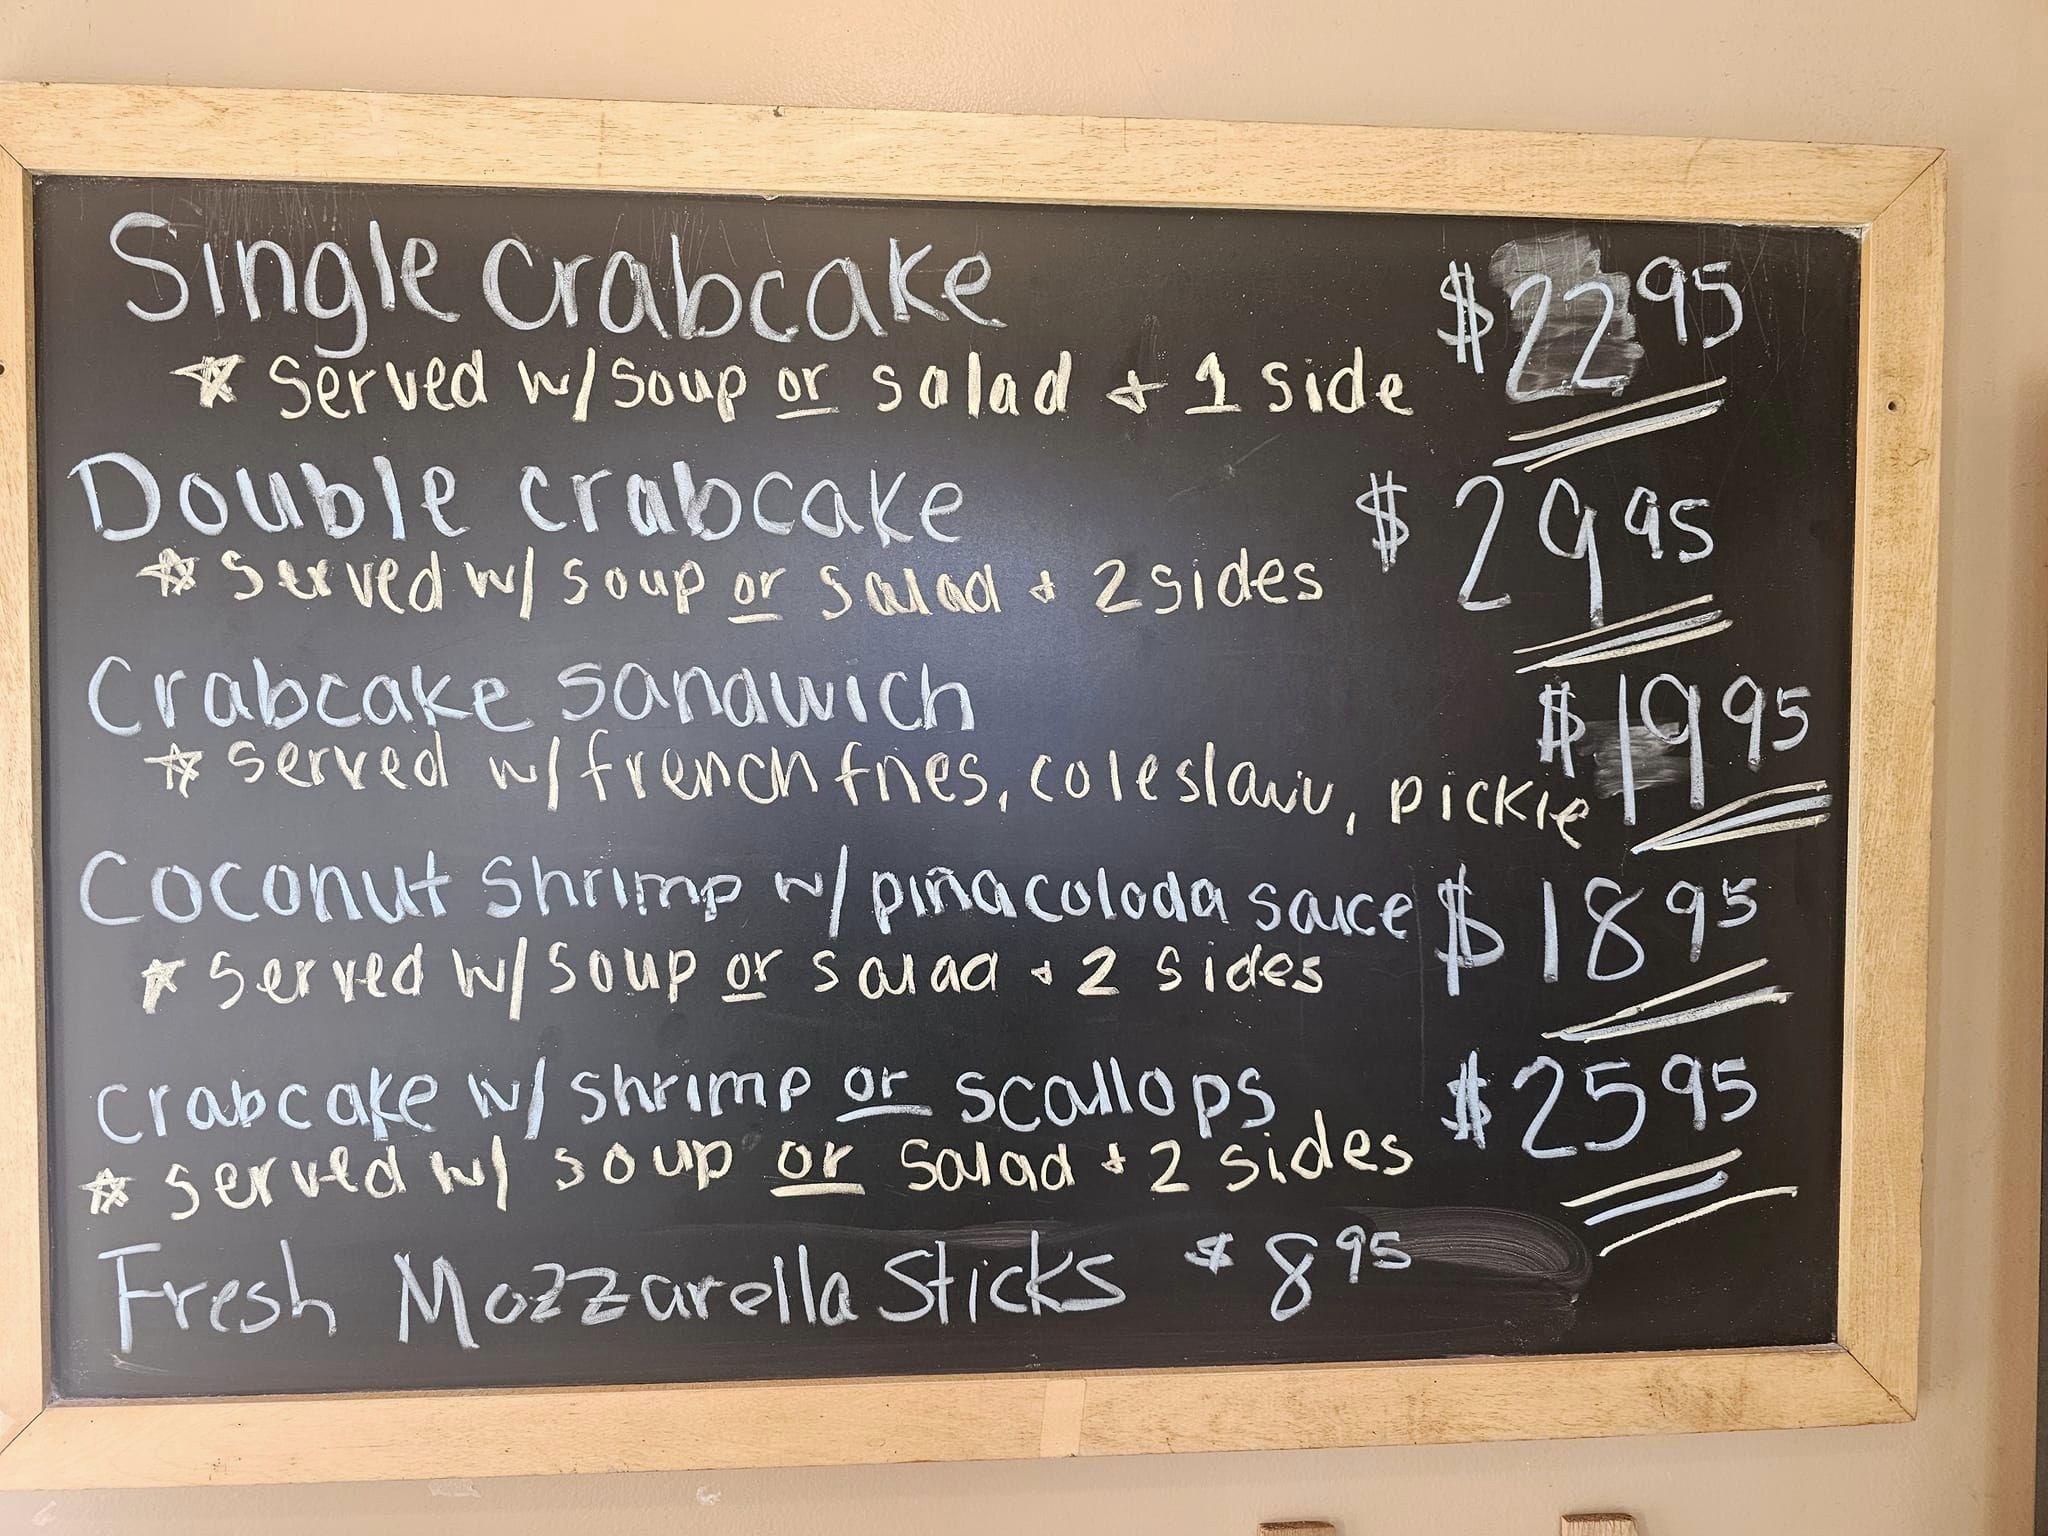 Single crabcake $22.95
☆ served w/ soup or salad + 1 side
Double crabcake $29.95
☆ served w/ soup or salad + 2 sides
Crabcake sandwich $19.95
☆ served w/ french fries, coleslaw, pickle
Coconut shrimp w/ piña colada sauce $18.95
☆ served w/ soup or salad + 2 sides
crabcake w/ shrimp or scallops $25.95
☆ served w/ soup or salad + 2 sides
Fresh Mozzarella Sticks $8.95